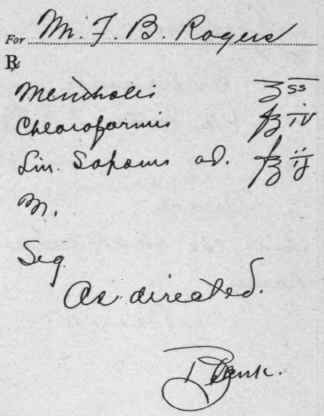 For M. F. B. Rogers
℞
Mentholis ʒss
Chloroformis ʒiv
Lin. Saponis ad. ℥ij
M.
Sig
As directed.
Blank.